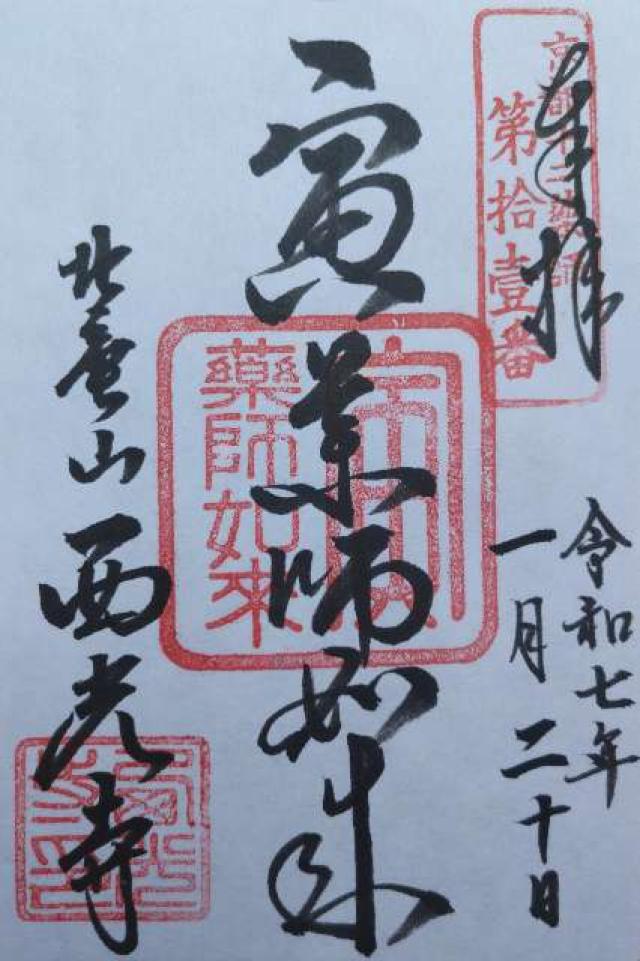 奉拝
京都十二薬師
第拾壹番
令和七年
一月二十日
寅薬師如来
寅
藥師如来
北菴山西光寺